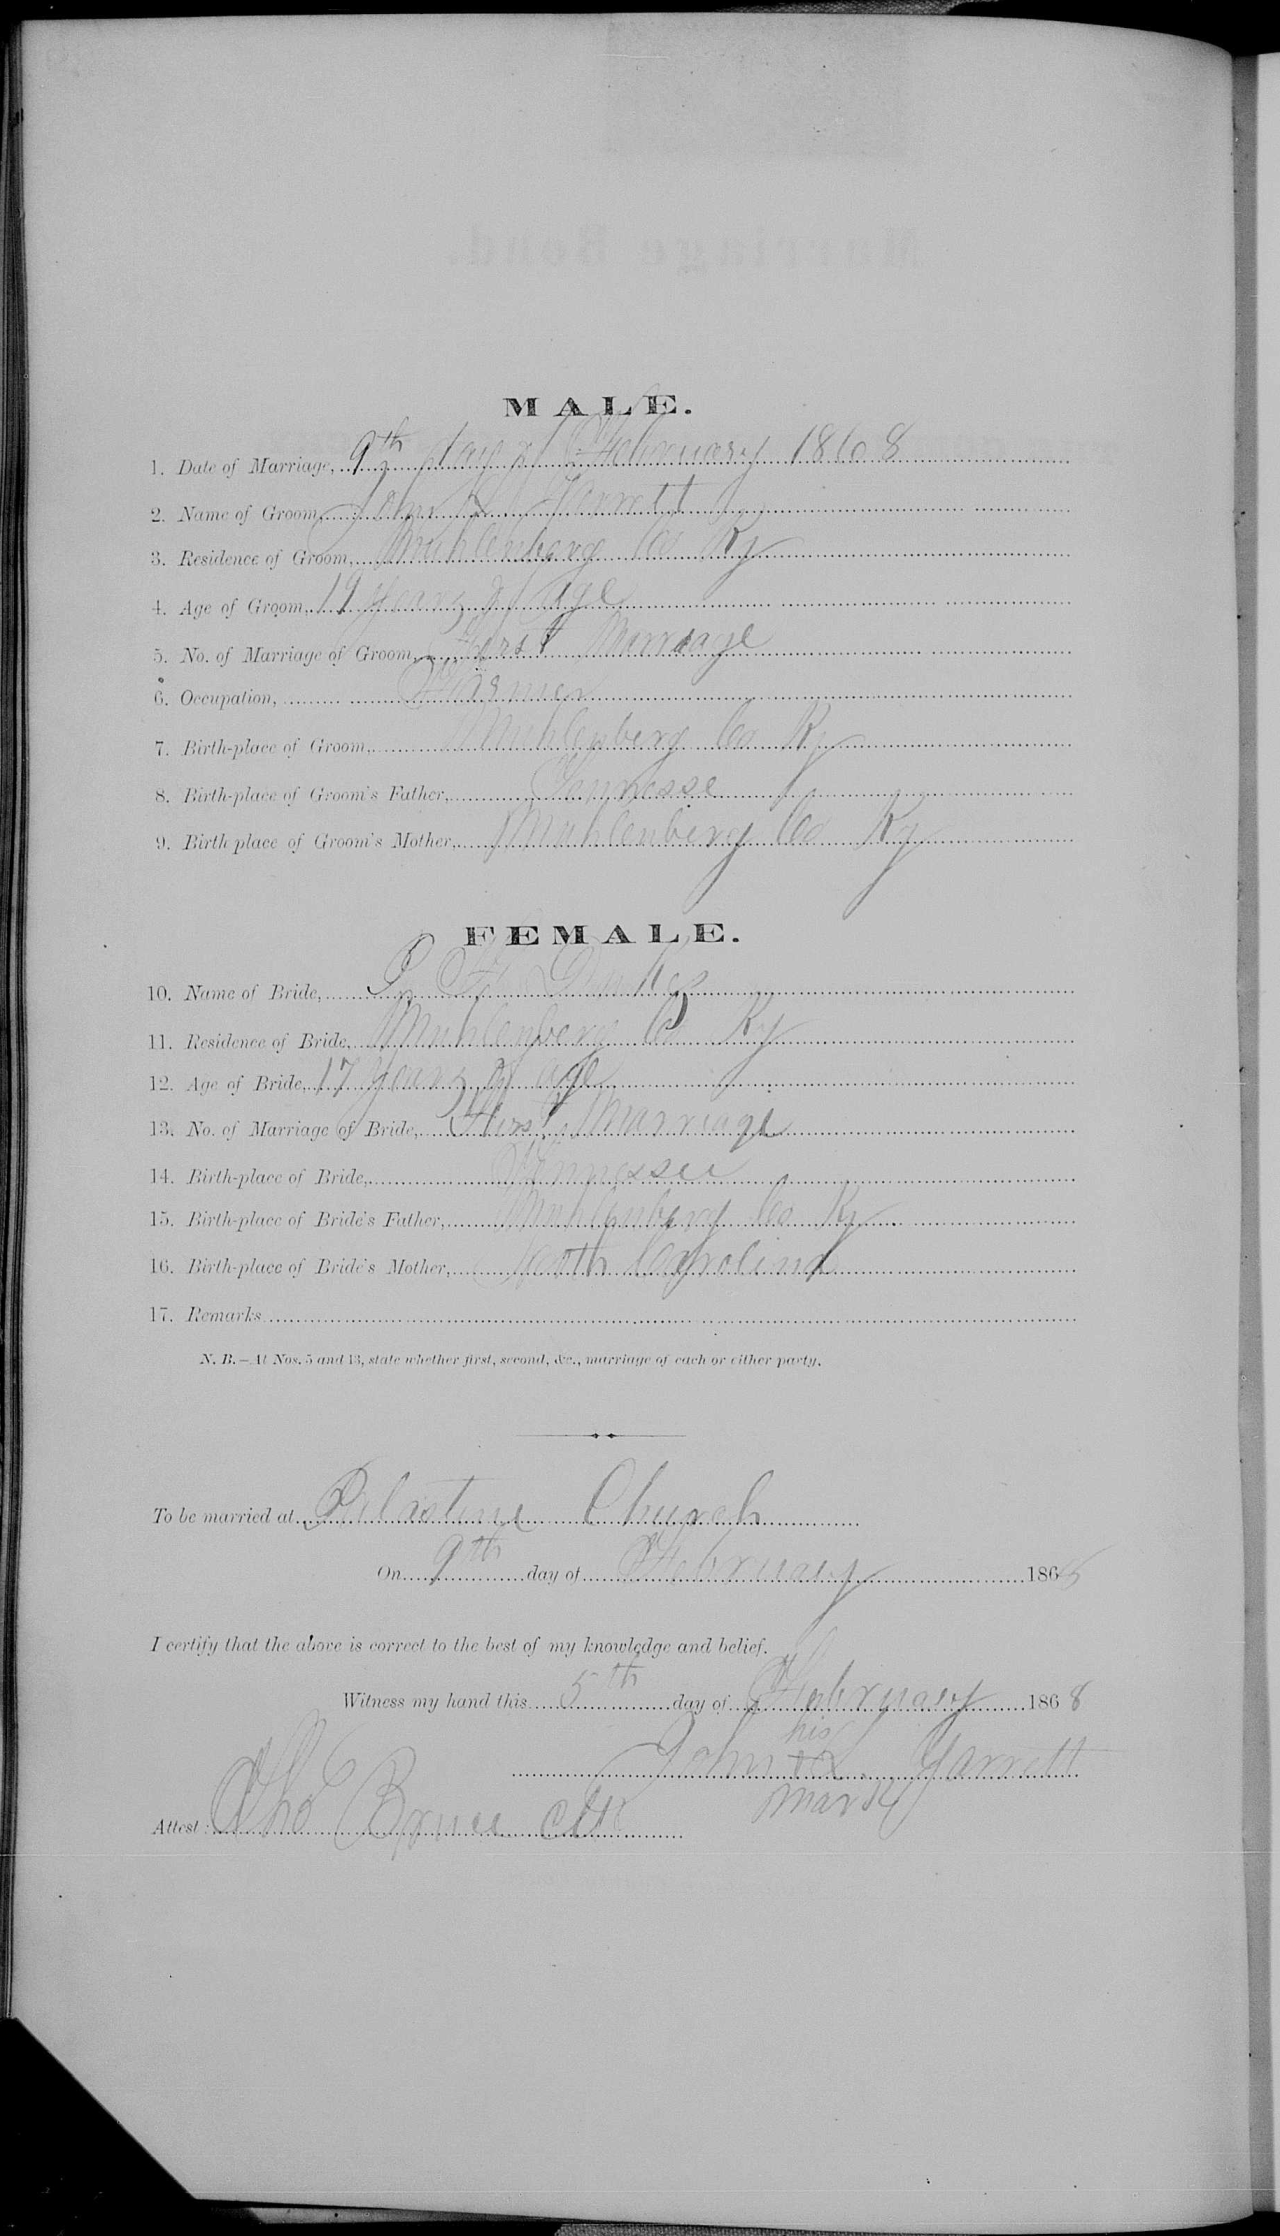 MALE.
1. Date of Marriage, 9th day of February 1868
2. Name of Groom, John L Garrett
3. Residence of Groom, Muhlenberg Co Ky
4. Age of Groom, 19 years of age
5. No. of Marriage of Groom, First Marriage
6. Occupation, Farmer
7. Birth-place of Groom, Muhlenberg Co Ky
8. Birth-place of Groom's Father, Tennesse
9. Birth place of Groom's Mother, Muhlenberg Co Ky
FEMALE.
10. Name of Bride, P
11. Residence of Bride, Muhlenberg Co Ky
12. Age of Bride, 17 years of age
13. No. of Marriage of Bride, First Marriage
14. Birth-place of Bride, Tennessee
15. Birth-place of Bride's Father, Muhlenberg Co Ky
16. Birth-place of Bride's Mother, North Carolina
17. Remarks
N. B.—At Nos. 5 and 13, state whether first, second, &c., marriage of each or either party.
To be married at Church
On 9th day of February 186
I certify that the above is correct to the best of my knowledge and belief.
Witness my hand this 5th day of February 1868
his
John + L Garrett
mark
Attest: Tho Bruce Clk